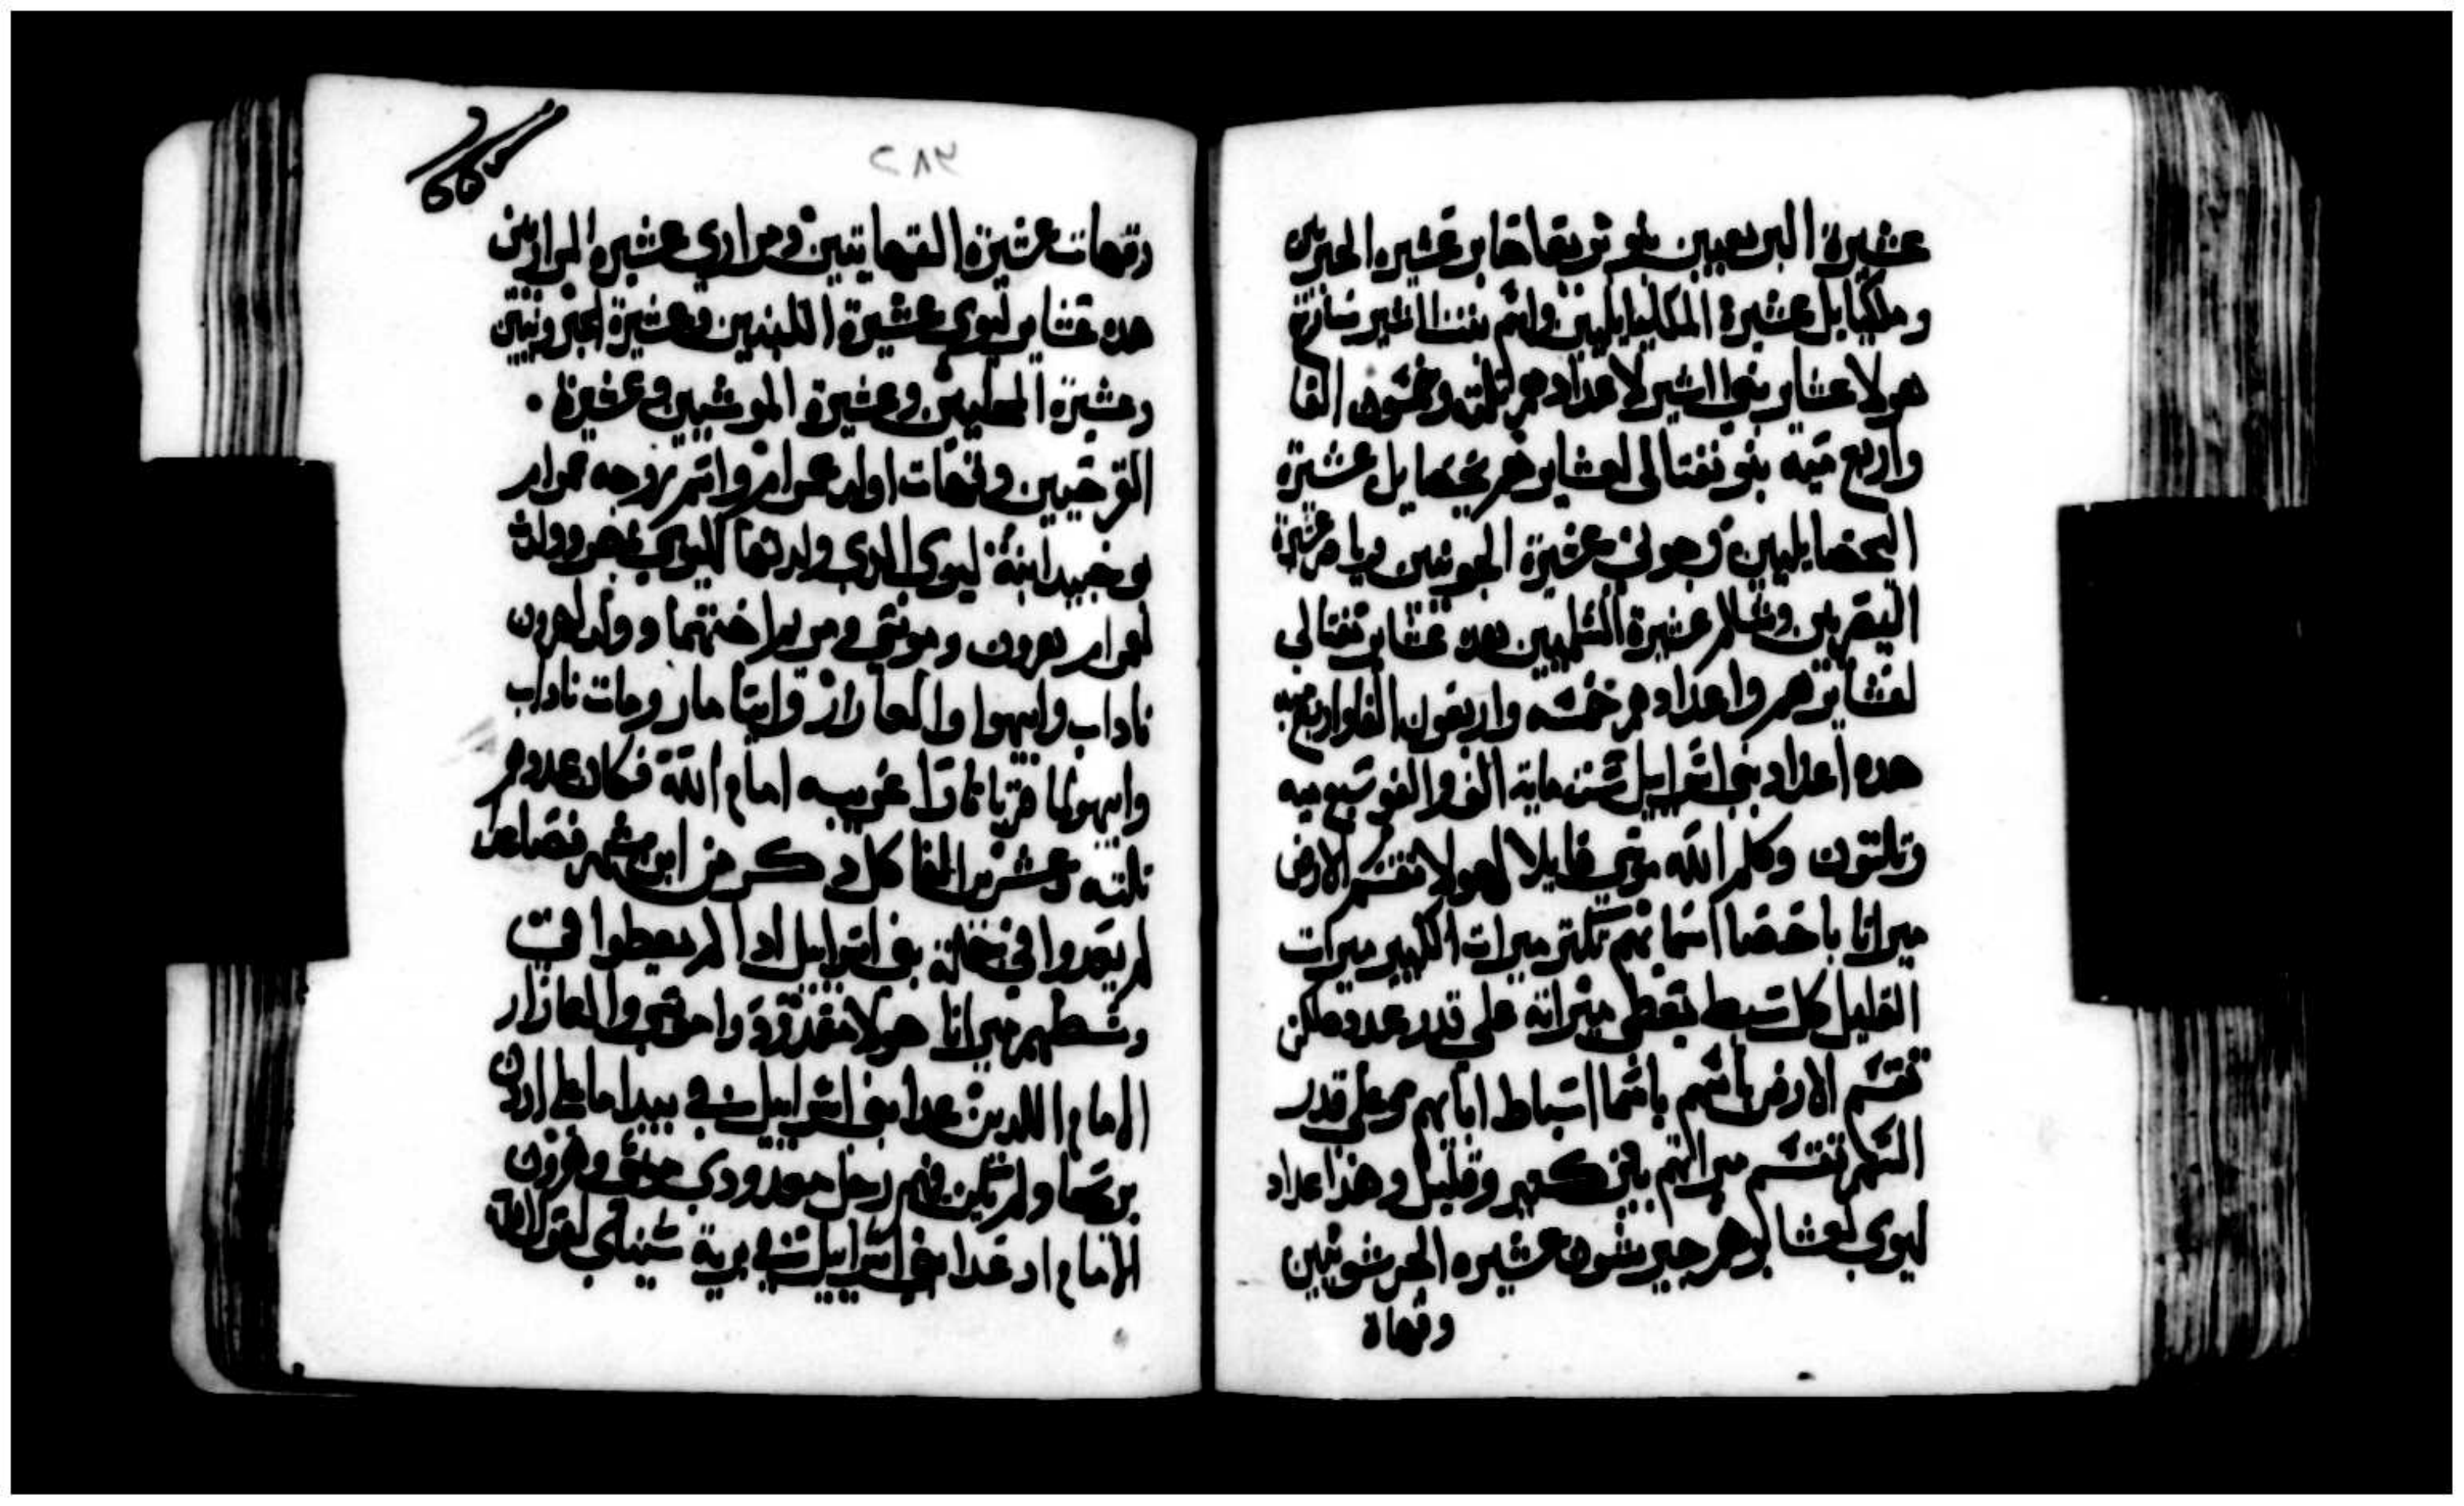 عشيرة البريعيين بنو بريعا حابر عشيره الحبريين
وملكيايل عشيرة الملكيايليين واسم بنت اشير سارح
هولا عشاير بني اشير لاعدادهم تلته وخمسون الفا
واربع ميه بنو نفتالي لعشايرهم يحصايل عشيرة
اليحصايليين وجوني عشيرة الجونيين وياصر عشيرة
اليصريين وشلم عشيرة الشلميين هده عشاير نفتالي
لعشايرهم واعدادهم خمسه واربعون الفا واربع ميه
هده اعداد بني اسراييل ست ماية الف والف وسبع ميه
وتلتون وكلم الله موسى قايلا لهولا تقسم الارض
ميراتا باحصا اسمايهم تكتر ميرات الكتير ميرات
القليل كل سبط تعطى ميراته على قدر عدده لكن
تقسم الارض باسهم باسما اسباط ابايهم وعلى قدر
السهم تقسم ميراتهم بين كتير وقليل وهذا عداد
ليوى لعشايرهم جيرشون عشيره الجرشونيين
وقهاة
٢٨٣
وقهات عشيرة القهاتيين ومراري عشيره المراريين
هده عشاير ليوى عشيرة اللبنيين وعشيرة الحبرونيين
وعشيرة المحليين وعشيرة الموشيين وعشيرة
القورحيين وقهات اولد عمرام واسم زوجه عمرام
يوخبيد ابنة ليوى الدى ولدتها لليوى بمصر وولدت
لعمرام هرون وموسى ومريم اختهما وولد لهرون
ناداب وابيهوا والعازار وايتامار ومات ناداب
وابيهوا لما قربا نارا غريبه امام الله فكان عددهم
تلته وعشرين الفا كل دكر من ابن شهر فصاعدا
لم يعدوا في نحلة بني اسراييل ادا لم يعطوا في
وسطهم ميراتا هولا معدودة وا موسى والعازار
الامام اللدين عدا بني اسراييل في بيدا ماب على اردن
يريحا ولم يكن فيهم رجل معدودي موسى وهرون
الامام اد عدا بني اسراييل في برية سيناي لقول الله